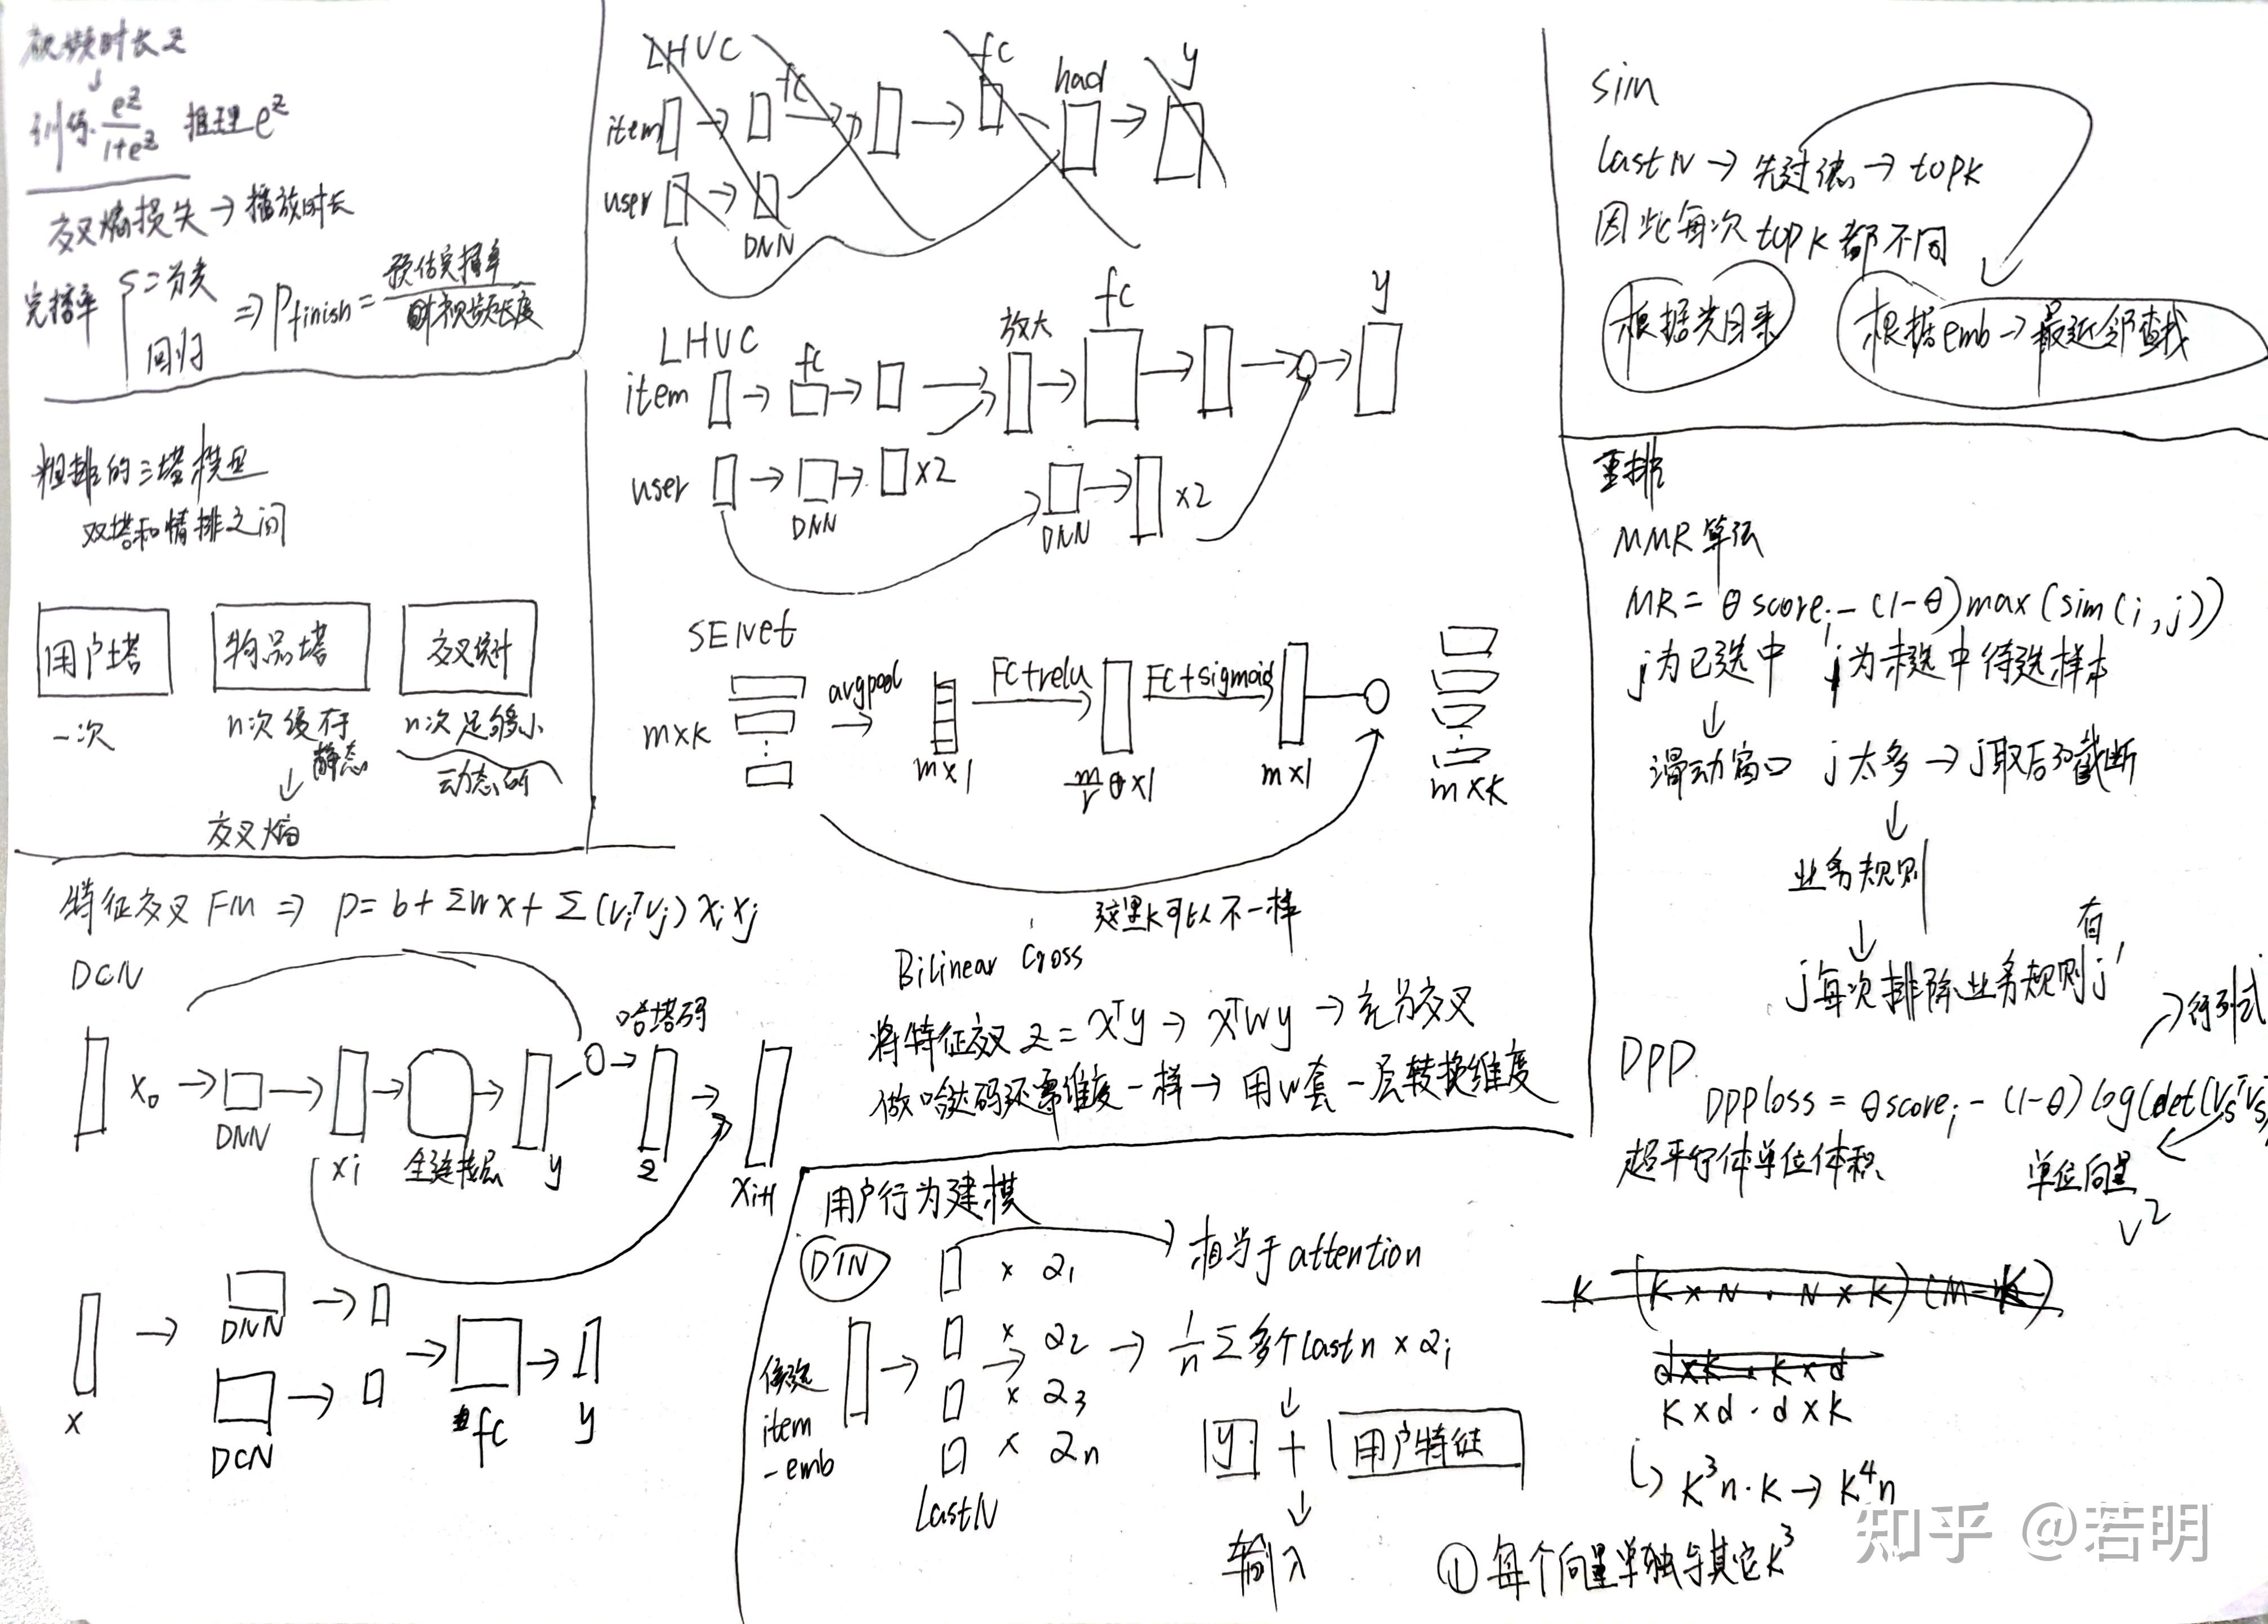 视频时长 z
↓
训练 e^z/(1+e^z) 推理 e^z
交叉熵损失 → 播放时长
完播率 二分类
回归
⇒ P finish = 预估完播率 / 视频长度
粗排的三塔模型
双塔和精排之间
用户塔 物品塔 交叉塔
一次 n次缓存 n次足够小
静态 动态的
交叉熵
特征交叉 FM ⇒ p = b + Σwx + Σ(vᵢᵀvⱼ)xᵢxⱼ
DCN
哈达码
x₀ → DNN → xi → 全连接层 → y → z → xi+1
x → DNN →
DCN → fc → y
LHVC fc fc had y
item
user
DNN
LHVC fc 放大 fc y
item
user DNN ×2 DNN ×2
SENet
m×k avgpool FC+relu FC+sigmoid
m×1 m/r ×1 m×1 m×k
这里k可以不一样
Bilinear Cross
将特征交叉 z = xᵀy → xᵀWy → 充分交叉
做哈达码还需维度一样 → 用W套一层转换维度
用户行为建模
DIN × α₁ 相当于attention
× α₂ → 1/n Σ 多个lastn × αi
× α₃
× αn
候选
item
-emb
LastN
y + 用户特征
↓
输入
sim
LastN → 先过滤 → topk
因此每次topk都不同
根据类目来 根据emb → 最近邻查找
重排
MMR算法
MR = θ scoreᵢ - (1-θ)max(sim(i,j))
j为已选中 i为未选中待选样本
↓
滑动窗口 j太多 → j取后 截断
↓
业务规则
↓ 有
j每次排除业务规则j'
DPP → 行列式
DPPloss = θscoreᵢ - (1-θ)log(det(VsᵀVs
超平行体单位体积 单位向量
V²
K (K×N · N×K)(M-K)
d×k · k×d
K×d · d×K
↳ K³n·K → K⁴n
① 每个向量单独与其它K³
知乎 @若明